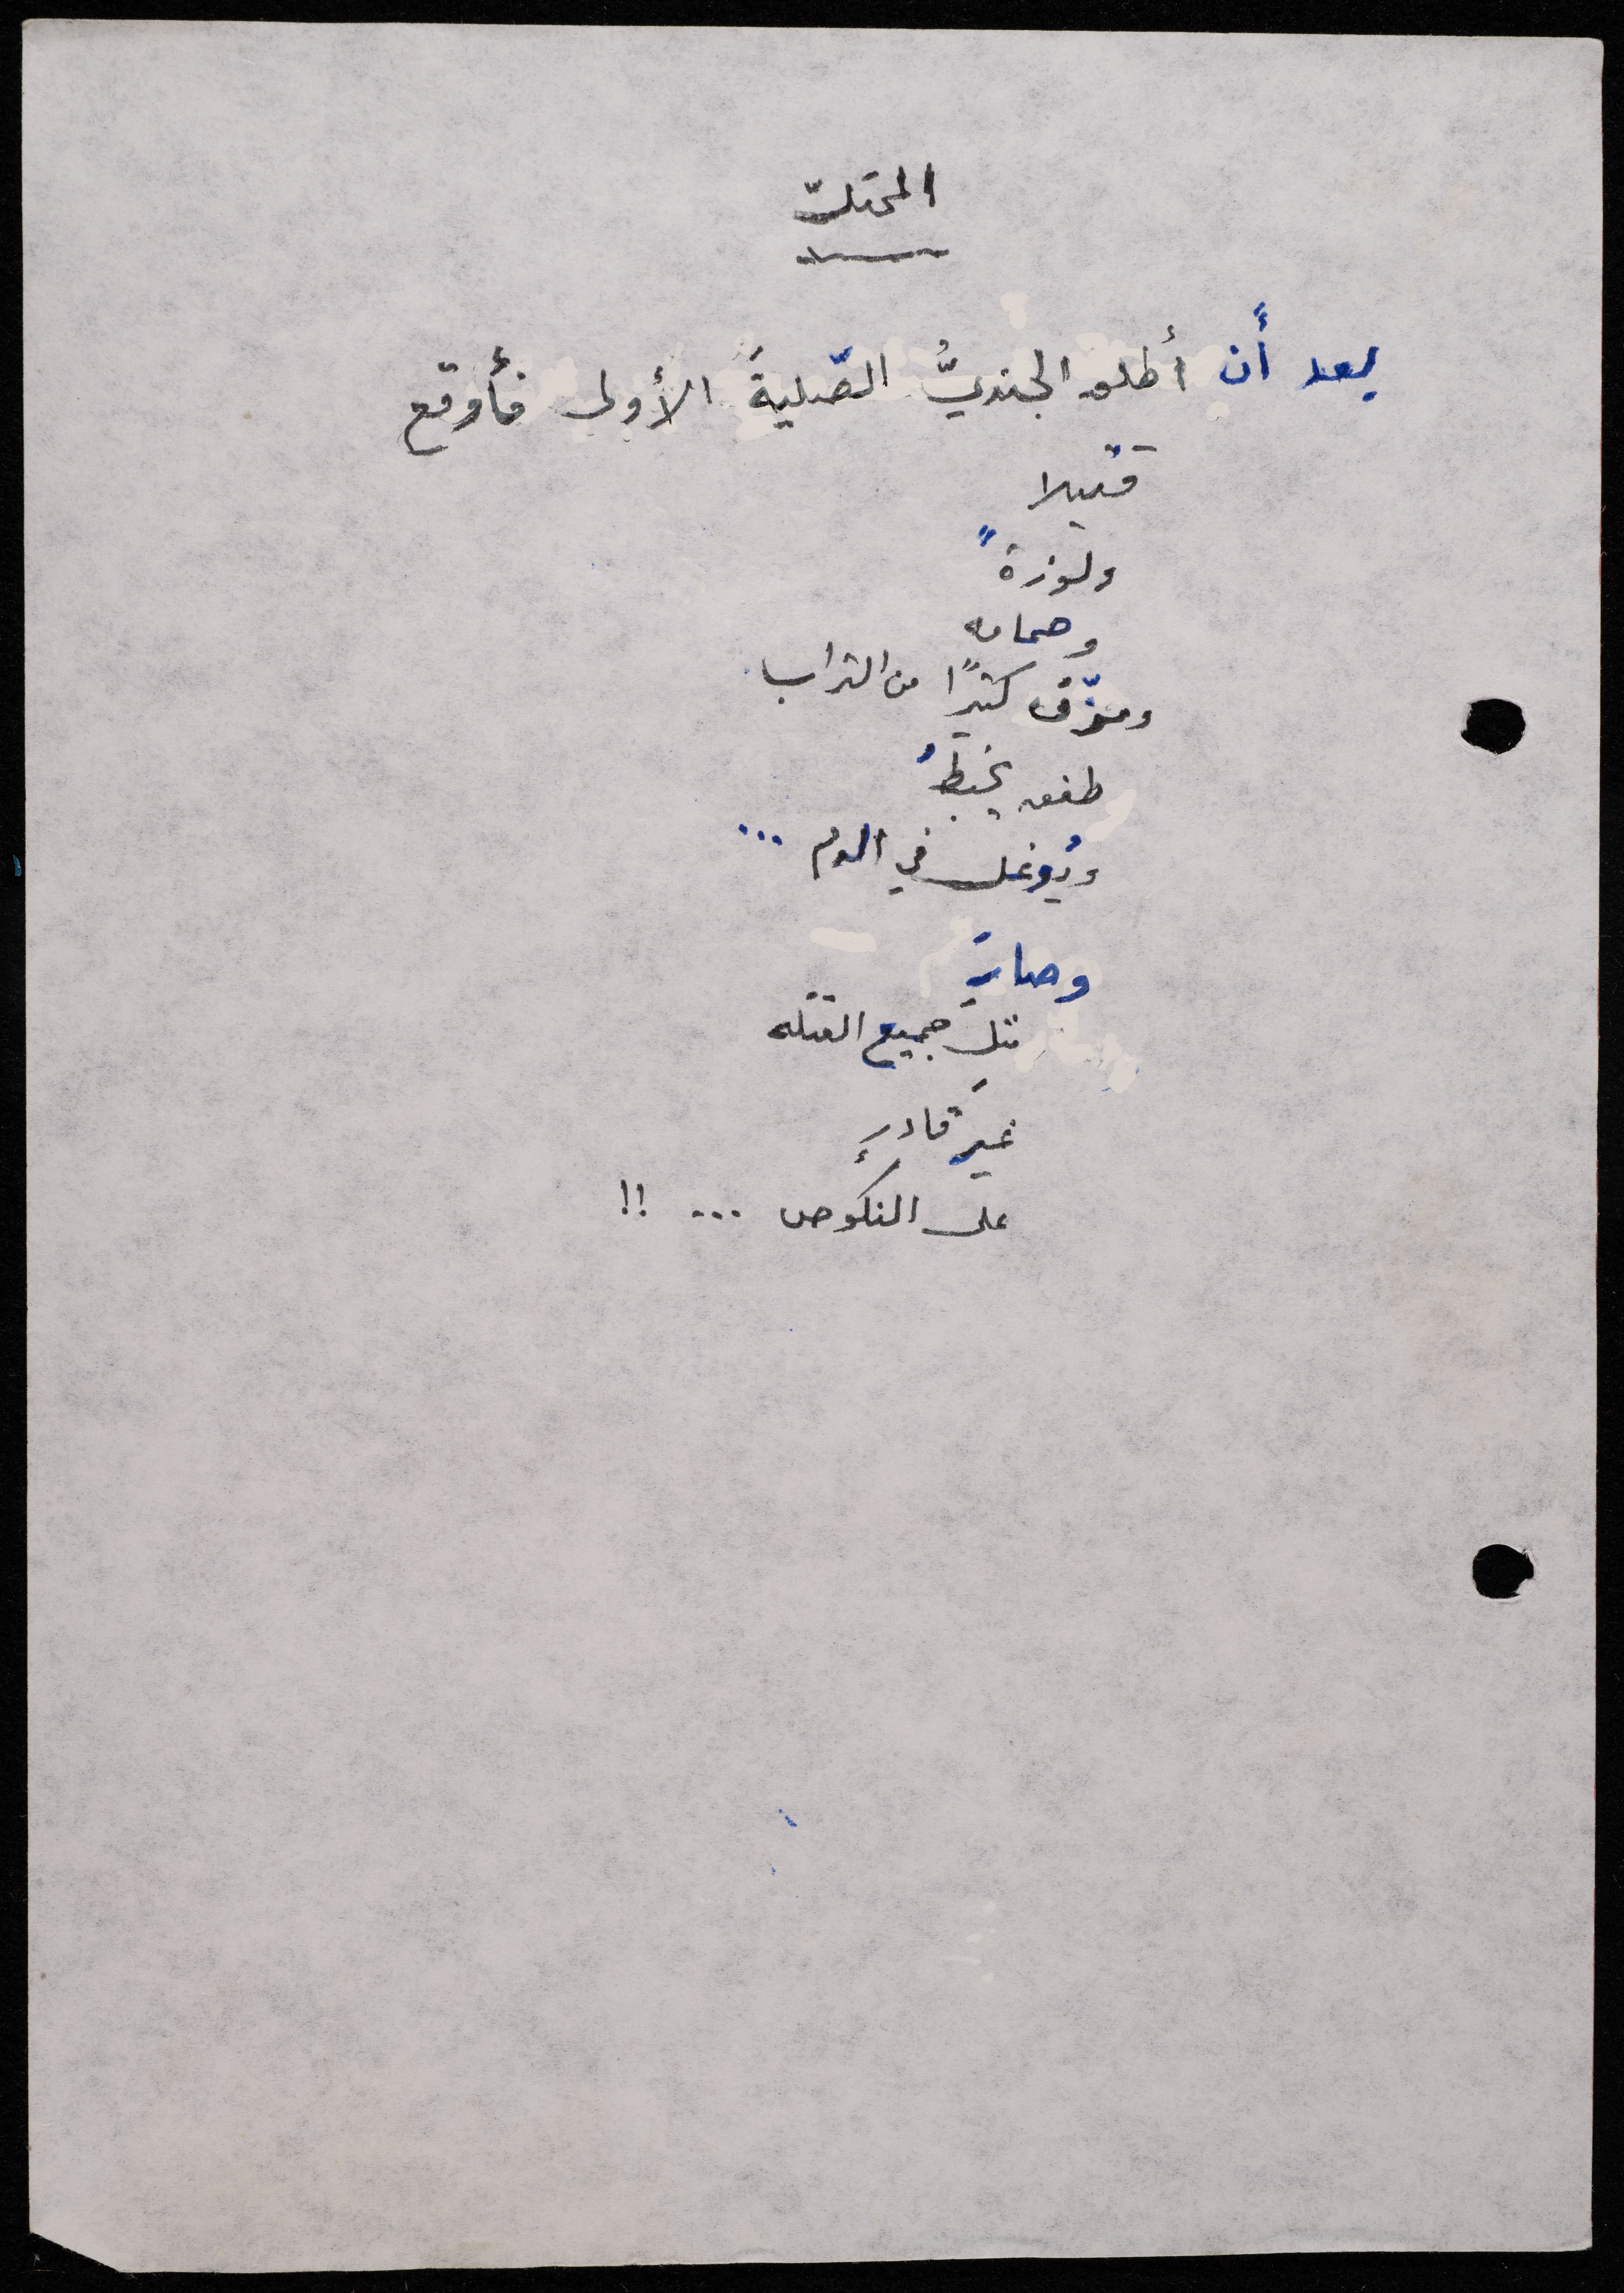 المحتلّ
بعد أَن أطلق الجنديُّ الصّليةَ الأولى فأوقع
قتيلا
ولوزةً
وحمامه
ومزّق كثيرًا من التراب
طفق يخبطُ
ويُوغل في الدم ...
وصارَ
مثلَ جميع القتله
غيرَ قادرٍ
على النكوص ... !!